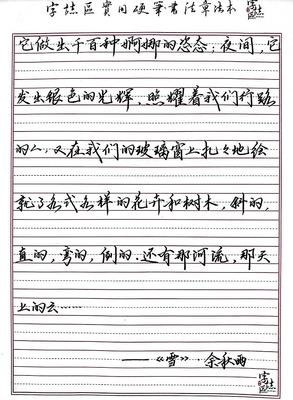 字誌區實用硬筆書法章法本
它做出千百种婀娜的姿态;夜间,它
发出银色的光辉,照耀着我们行路
的人,又在我们的玻璃窗上扎々地绘
就了各式各样的花卉和树木,斜的,
直的,弯的,倒的.还有那河流,那天
上的云……
——《雪》·余秋雨